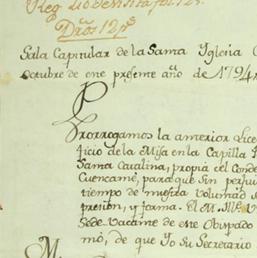 Reg. a fol. 127.
Dros 12 ps
Sala Capitular de la Santa Iglesia
octubre de este presente año de 1794
Prorrogamos la anterior Lice
ficio de la Misa en la Capilla
Santa Catalina, propia del Conde
Cuencamé, para que sin perjui
tiempo de nuestra voluntad
presion, y forma. El M. Ille. V.
Sede Vacante de este Obispado
mó, de que Yo su Secretario